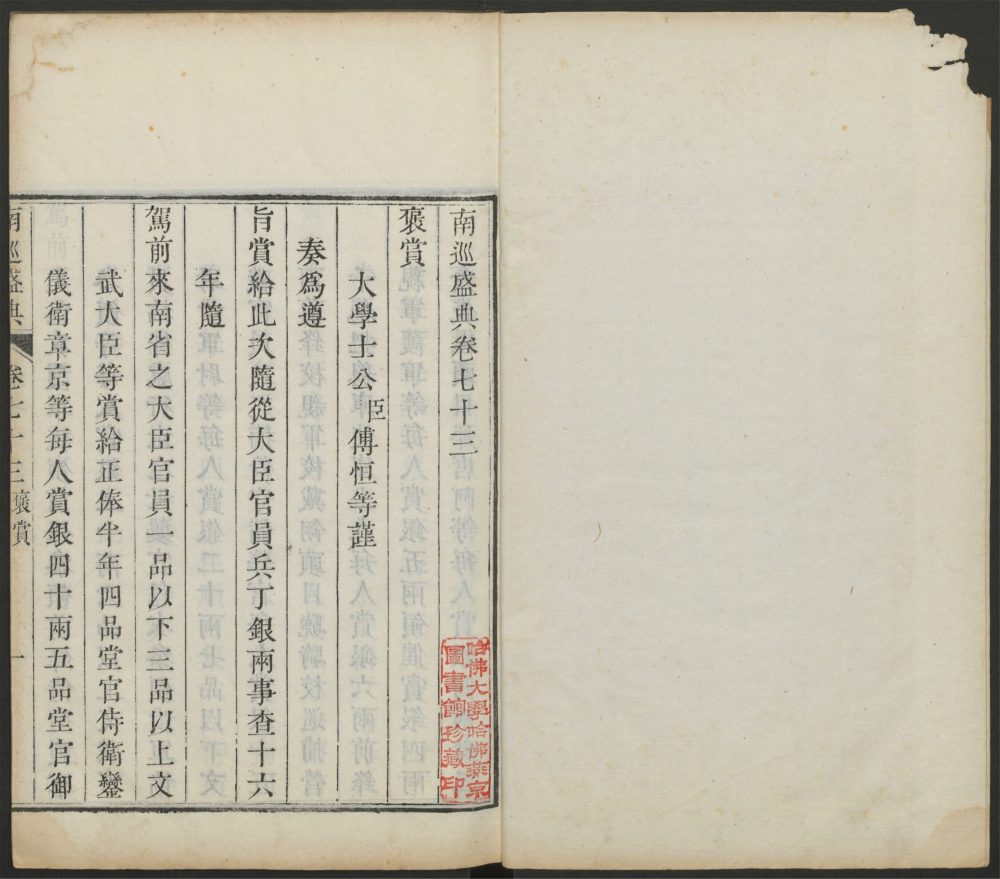 南巡盛典卷七十三
褒賞
大學士公臣傅恒等謹
奏爲遵
旨賞給此次隨從大臣官員兵丁銀兩事查十六
年隨
駕前來南省之大臣官員一品以下三品以上文
武大臣等賞給正俸半年四品堂官侍衛鑾
儀衛章京等每人賞銀四十兩五品堂官御
南巡盛典 卷七十三 褒賞 一
哈佛大學哈佛燕京
圖書館珍藏印